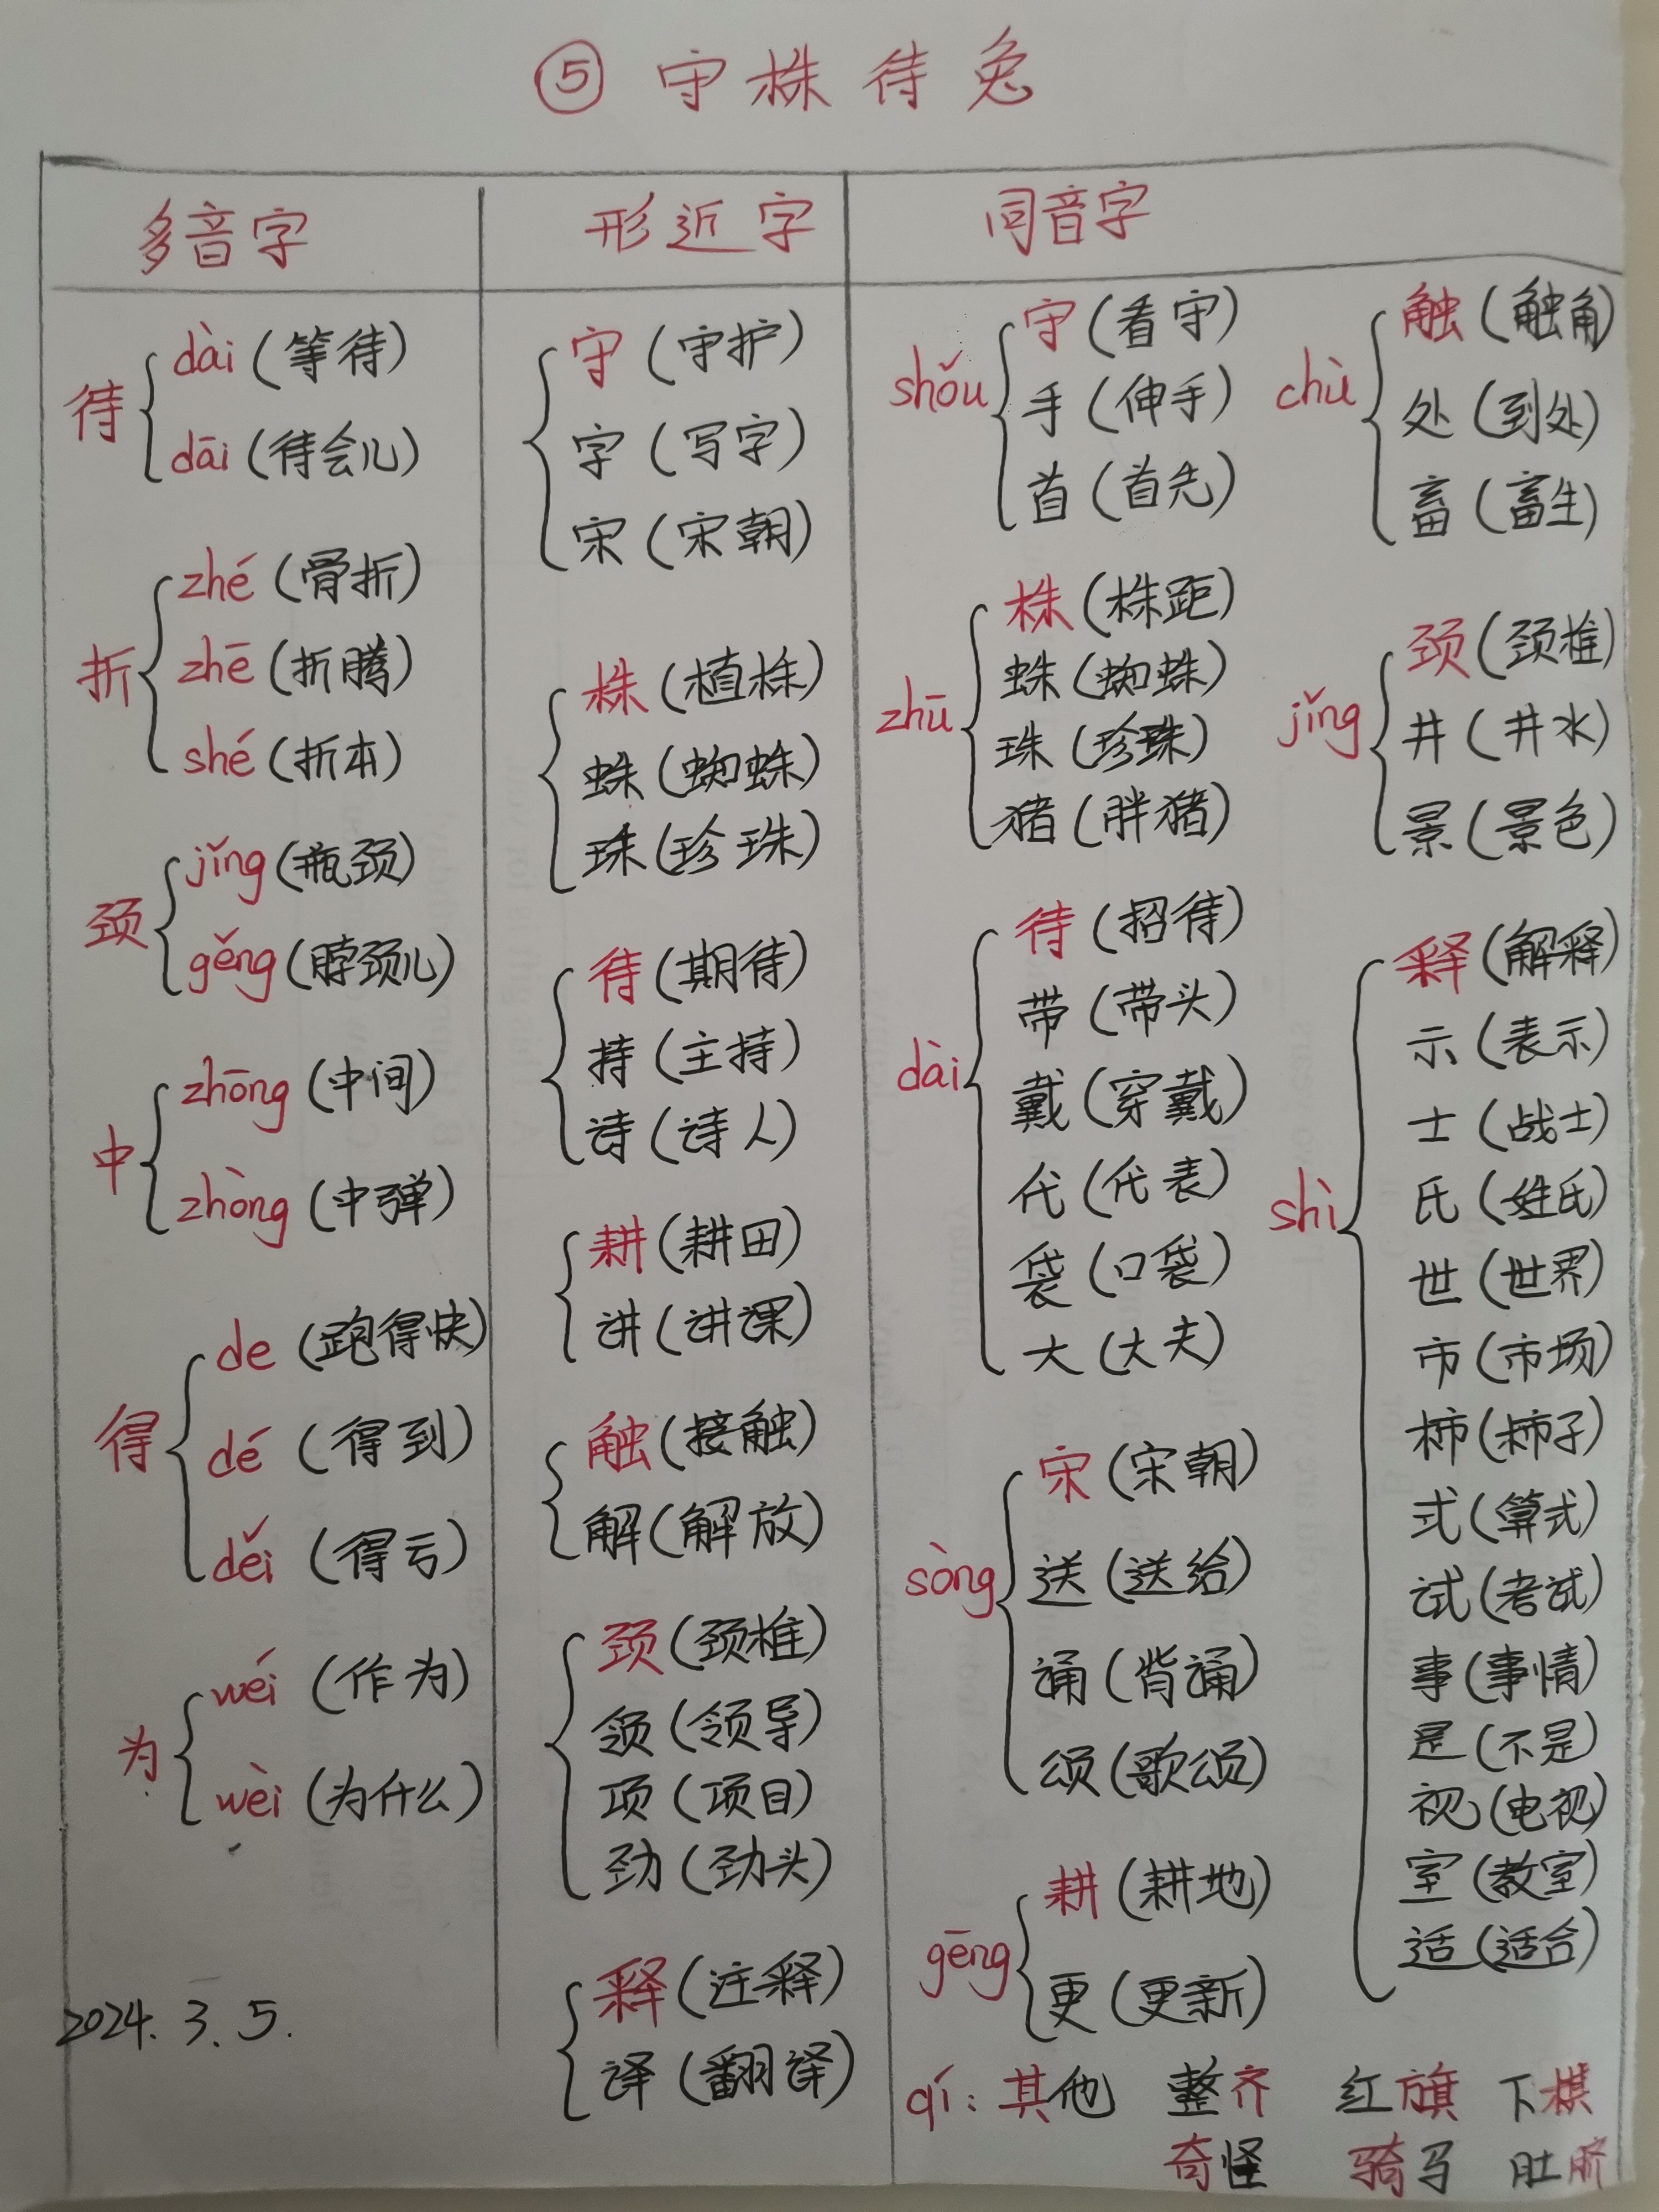 ⑤ 守株待兔
多音字
待
dài (等待)
dāi (待会儿)
折
zhé (骨折)
zhē (折腾)
shé (折本)
颈
jǐng (瓶颈)
gěng (脖颈儿)
中
zhōng (中间)
zhòng (中弹)
得
de (跑得快)
dé (得到)
děi (得亏)
为
wéi (作为)
wèi (为什么)
2024.3.5.
形近字
守 (守护)
字 (写字)
宋 (宋朝)
株 (植株)
蛛 (蜘蛛)
珠 (珍珠)
待 (期待)
持 (主持)
诗 (诗人)
耕 (耕田)
讲 (讲课)
触 (接触)
解 (解放)
颈 (颈椎)
领 (领导)
项 (项目)
劲 (劲头)
释 (注释)
译 (翻译)
同音字
shǒu
守 (看守)
手 (伸手)
首 (首先)
zhū
株 (株距)
蛛 (蜘蛛)
珠 (珍珠)
猪 (胖猪)
dài
待 (招待)
带 (带头)
戴 (穿戴)
代 (代表)
袋 (口袋)
大 (大夫)
sòng
宋 (宋朝)
送 (送给)
诵 (背诵)
颂 (歌颂)
gēng
耕 (耕地)
更 (更新)
chù
触 (触角)
处 (到处)
畜 (畜生)
jǐng
颈 (颈椎)
井 (井水)
景 (景色)
shì
释 (解释)
示 (表示)
士 (战士)
氏 (姓氏)
世 (世界)
市 (市场)
柿 (柿子)
式 (算式)
试 (考试)
事 (事情)
是 (不是)
视 (电视)
室 (教室)
适 (适合)
qí: 其他 整齐 红旗 下棋
奇怪 骑马 肚脐